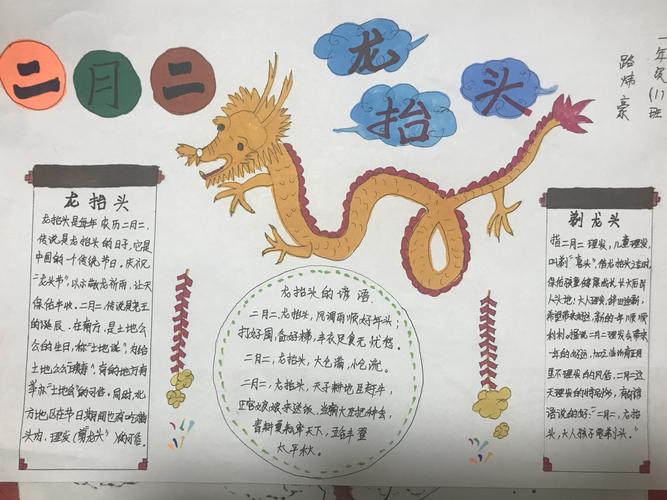 二月二
龙抬头
一年级(1)班
路炜豪
龙抬头
龙抬头是每年农历二月二,
传说是龙抬头的日子,它是
中国的一个传统节日。庆祝
"龙头节",以示敬龙祈雨,让天
保佑丰收。二月二,传说是尧王
的诞辰。在南方,是土地公
公的生日,称"土地诞",为给
土地公公"暖寿",有的地方有
举办"土地会"的习俗。同时,北
方地区在节日期间也有吃猪
头肉、理发(剃龙头)的习俗。
龙抬头的谚语
二月二,龙抬头,风调雨顺好年头;
打好囤,备好梯,丰衣足食无忧愁。
二月二,龙抬头,大仓满,小仓流。
二月二,龙抬头,天子耕地臣赶牛,
正宫娘娘来送饭,当朝大臣把种丢,
春耕夏耘率天下,五谷丰登
太平秋。
剃龙头
指二月二理发,儿童理发,
叫剃"喜头",借龙抬头之吉时,
保佑孩童健康成长,长大后出
人头地;大人理发,辞旧迎新,
希望带来好运,新的一年顺顺
利利。据说二月二理发会带来
一年的好运,加之临沂有正月
里不理发的风俗,二月二这
天理发的特别多,有俗
语说的好:"二月二,龙抬
头,大人孩子要剃头。"